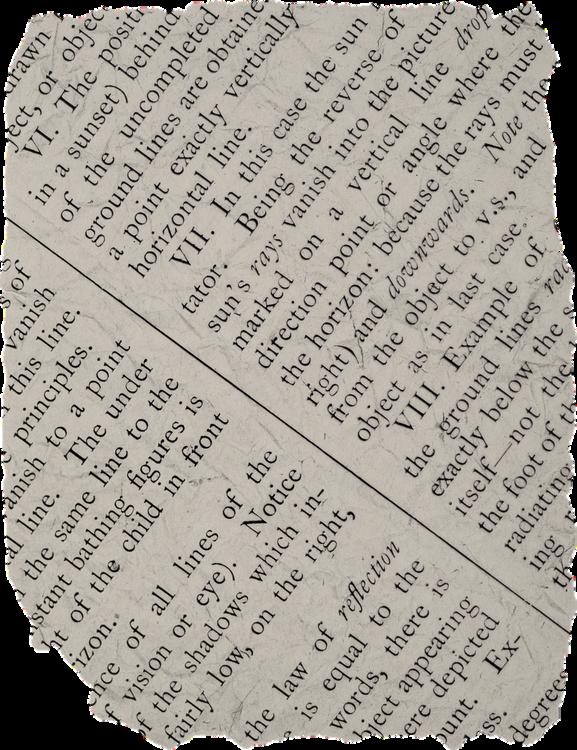 drawn
ject, or objec
VI. The positi
in a sunset) behind
of the uncompleted
ground lines are obtain
a point exactly vertically
horizontal line.
VII. In this case the sun
tator. Being the reverse of
sun's rays vanish into the picture
marked on a vertical line drop
direction point or angle where the
the horizon: because the rays must
right) and downwards. Note the
from the object to v.s., and
object as in last case.
VIII. Example of
the ground lines rad
exactly below the s
itself—not the
the foot of th
radiating
ing
th
s of
vanish
this line.
principles.
anish to a point
al line. The under
the same line to the
stant bathing figures is
t of the child in front
izon.
nce of all lines of the
f vision or eye). Notice
f the shadows which in-
fairly low, on the right,
the law of reflection
e is equal to the
words, there is
bject appearing
ere depicted
unt. Ex-
ess.
degrees